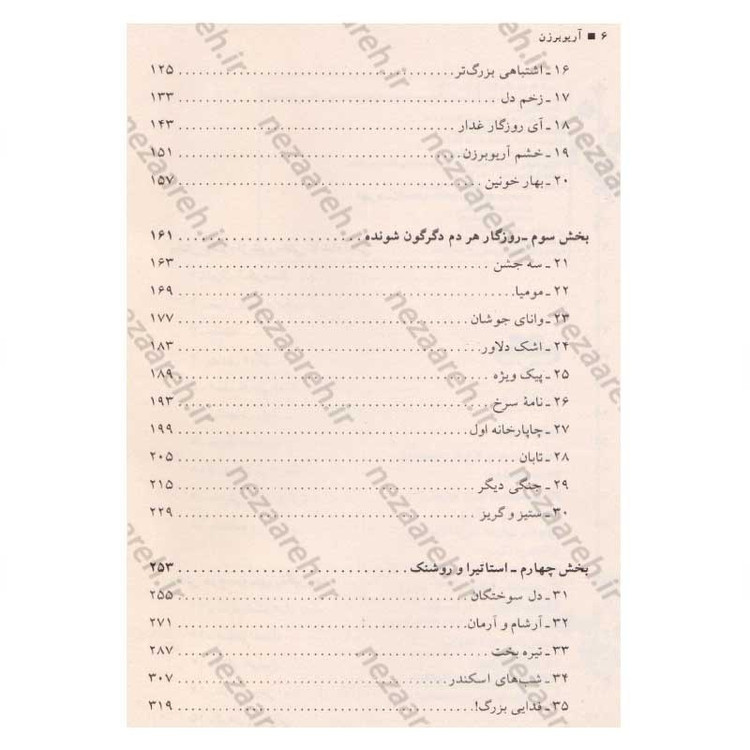 ۶ ■ آریوبرزن
۱۶ ـ اشتباهی بزرگ‌تر ........ ۱۲۵
۱۷ ـ زخم دل ........ ۱۳۳
۱۸ ـ آی روزگار غدار ........ ۱۴۳
۱۹ ـ خشم آریوبرزن ........ ۱۵۱
۲۰ ـ بهار خونین ........ ۱۵۷
بخش سوم ـ روزگار هر دم دگرگون شونده ........ ۱۶۱
۲۱ ـ سه جشن ........ ۱۶۳
۲۲ ـ مومیا ........ ۱۶۹
۲۳ ـ وانای جوشان ........ ۱۷۷
۲۴ ـ اشک دلاور ........ ۱۸۳
۲۵ ـ پیک ویژه ........ ۱۸۹
۲۶ ـ نامهٔ سرخ ........ ۱۹۳
۲۷ ـ چاپارخانه اول ........ ۱۹۹
۲۸ ـ تابان ........ ۲۰۵
۲۹ ـ جنگی دیگر ........ ۲۱۵
۳۰ ـ ستیز و گریز ........ ۲۲۹
بخش چهارم ـ استاتیرا و روشنک ........ ۲۵۳
۳۱ ـ دل سوختگان ........ ۲۵۵
۳۲ ـ آرشام و آرمان ........ ۲۷۱
۳۳ ـ تیره بخت ........ ۲۸۷
۳۴ ـ شب‌های اسکندر ........ ۳۰۷
۳۵ ـ فدایی بزرگ! ........ ۳۱۹
nezaareh.ir